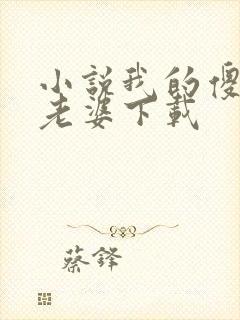 小説我的傻
老婆下載
蔡鋒